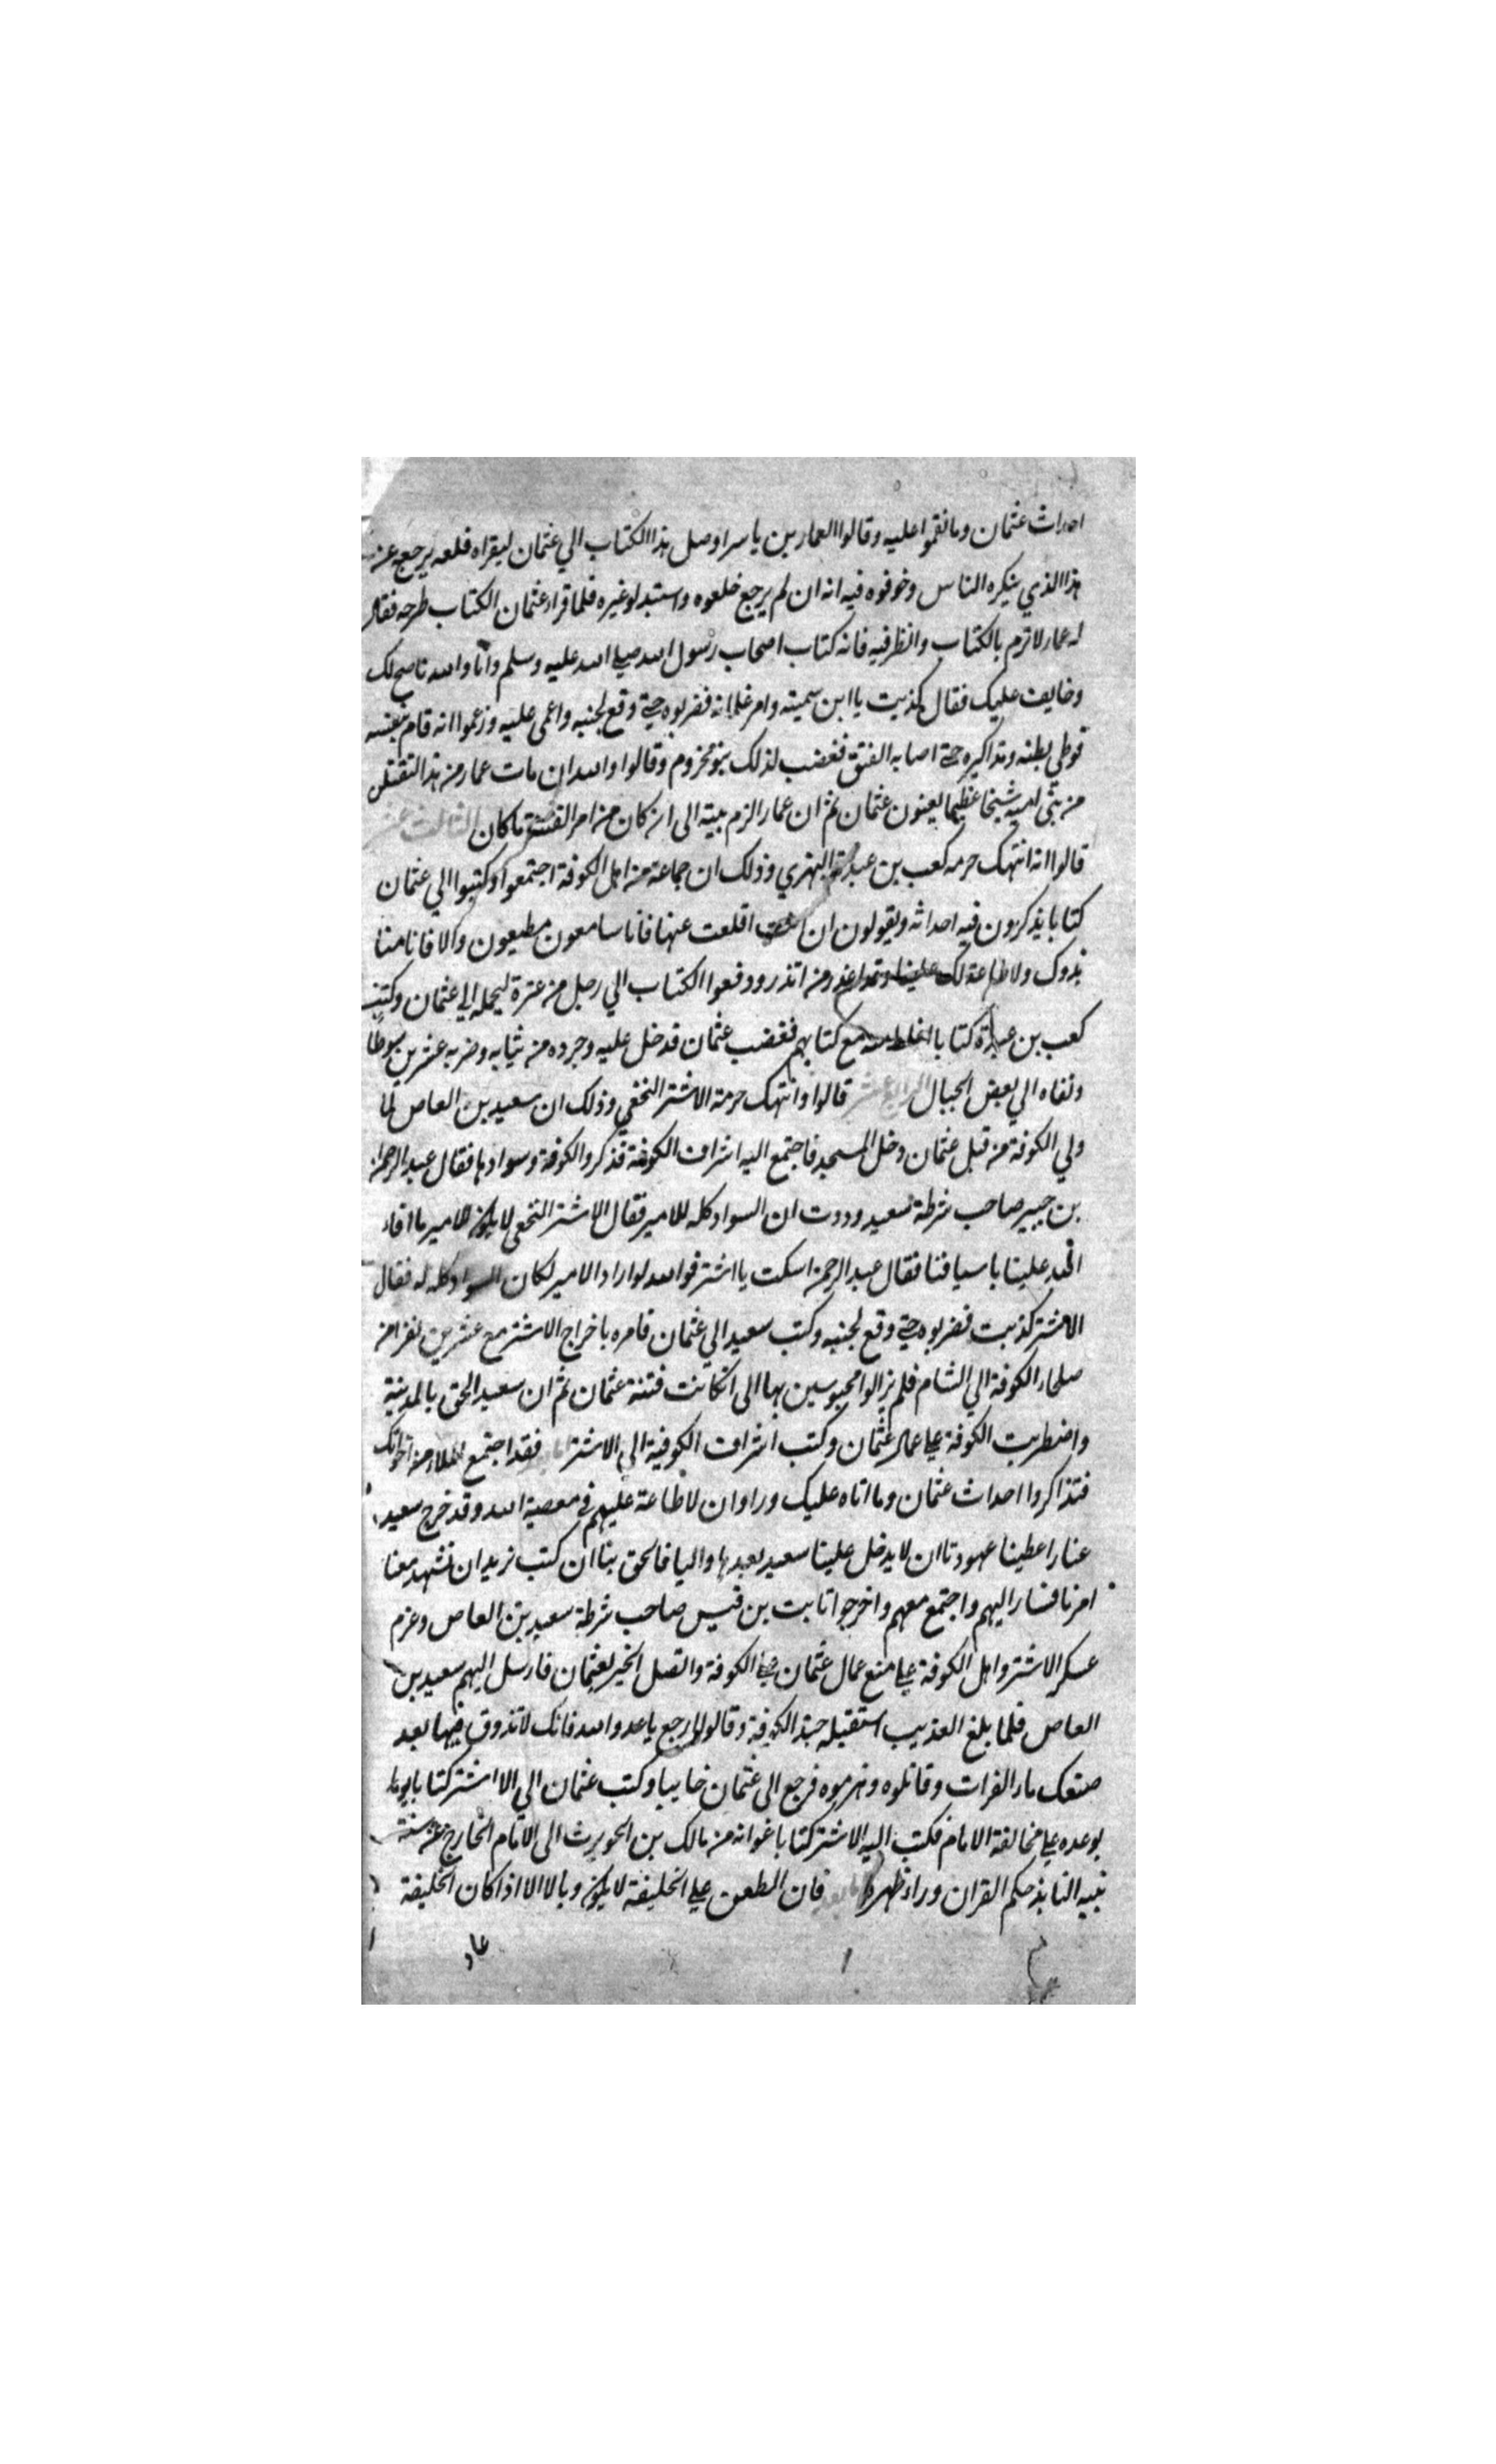 احداث عثمان وما نقموا عليه وقالوا لعمار بن ياسر اوصل هذا الكتاب الي عثمان ليقراه فلعله يرجع عن
هذا الذي ينكره الناس وخوفوه فيه انه ان لم يرجع خلعوه واستبدلو غيره فلما قراء عثمان الكتاب طرحه فقال
له عمار لا ترم بالكتاب وانظر فيه فانه كتاب اصحاب رسول الله صلي الله عليه وسلم وانا والله ناصح لك
وخايف عليك فقال كذبت يا ابن سميته وامر غلمانه فضربوه حتي وقع لجنبه واغمي عليه وزعموا انه قام بنفسه
فوطي بطنه ومذاكيره حتي اصابه الفتق فغضب لذلك بنو مخزوم وقالوا والله ان مات عمار من هذا لنقتلن
من بني اميه شيخا عظيما يعنون عثمان ثم ان عمارا لزم بيته الى ان كان من امر الفتنة ما كان الثالث عشر
قالوا انه انتهك حرمه كعب بن عبدة البهزي وذلك ان جماعة من اهل الكوفة اجتمعوا وكتبوا الي عثمان
كتابا يذكرون فيه احداثه ويقولون ان اقلعت عنها فانا سامعون مطيعون والا فانا منا
بذوك ولا طاعة لك علينا وقد اعذر من انذر ودفعوا الكتاب الي رجل من عنزة ليحمله الي عثمان وكتب
كعب بن عبدة كتابا مع كتابهم فغضب عثمان فدخل عليه وجرده من ثيابه وضربه عشرين سوطا
ونفاه الي بعض الجبال الرابع عشر قالوا وانتهك حرمة الاشتر النخعي وذلك ان سعيد بن العاص لما
ولي الكوفة من قبل عثمان دخل المسجد فاجتمع اليه اشراف الكوفة فذكروا الكوفة وسوادها فقال عبد الرحمن
بن جبير صاحب شرطة سعيد وددت ان السواد كله للامير فقال الاشتر النخعي لا يكون للامير ما افاء
الله علينا باسيافنا فقال عبد الرحمن اسكت يا اشتر فوالله لو اراد الامير لكان السواد كله له فقال
الاشتر كذبت فضربوه حتي وقع لجنبه وكتب سعيد الي عثمان فامره باخراج الاشتر مع عشرين نفرا من
صلحاء الكوفة الي الشام فلم يزالوا محبوسين بها الى ان كانت فتنة عثمان ثم ان سعيد الحق بالمدينة
واضطربت الكوفة علي عمال عثمان وكتب اشراف الكوفية الى الاشتر اما بعد فقد اجتمع الملاء من اخوانك
فتذاكروا احداث عثمان وما اتاه عليك وراوا ان لا طاعة عليهم في معصية الله وقد خرج سعيد
عنا واعطينا عهودنا ان لا يدخل علينا سعيد بعدها واليا فالحق بنا ان كنت تريد ان تشهد معنا
امرنا فسار اليهم واجتمع معهم واخرجوا ثابت بن قيس صاحب شرطة سعيد بن العاص وعزم
عسكر الاشتر واهل الكوفة علي منع عمال عثمان علي الكوفة واتصل الخبر بعثمان فارسل اليهم سعيد بن
العاص فلما بلغ العذيب استقبله جند الكوفة وقالوا ارجع يا عدو الله فانك لا تذوق فيها بعد
صنعك ماء الفرات وقاتلوه وهزموه فرجع الى عثمان خايبا وكتب عثمان الي الاشتر كتابا
يوعده علي مخالفة الامام فكتب اليه الاشتر كتابا عنوانه من مالك بن الحويرث الى الامام الخارج عن سنة
نبيه النابذ حكم القران وراء ظهره اما بعد فان الطعن علي الخليفة لا يكون وبالا الا اذا كان الخليفة
عاد